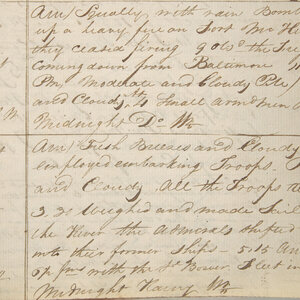 AM Squally with rain Bomb
up a heavy fire on Fort McHe
they ceased firing 9 obs^d the
coming down from Baltimore
PM Moderate and Cloudy
and Cloudy 4 Small armd men
Midnight D^o W^r
AM Fresh Breezes and Cloudy
employed embarking Troops.
and Cloudy. All the Troops
3.30 Weighed and made Sail
the River the Admirals shifted
into their former Ships 5.15
up with the B^t Bower Fleet in
Midnight Rainy W^r